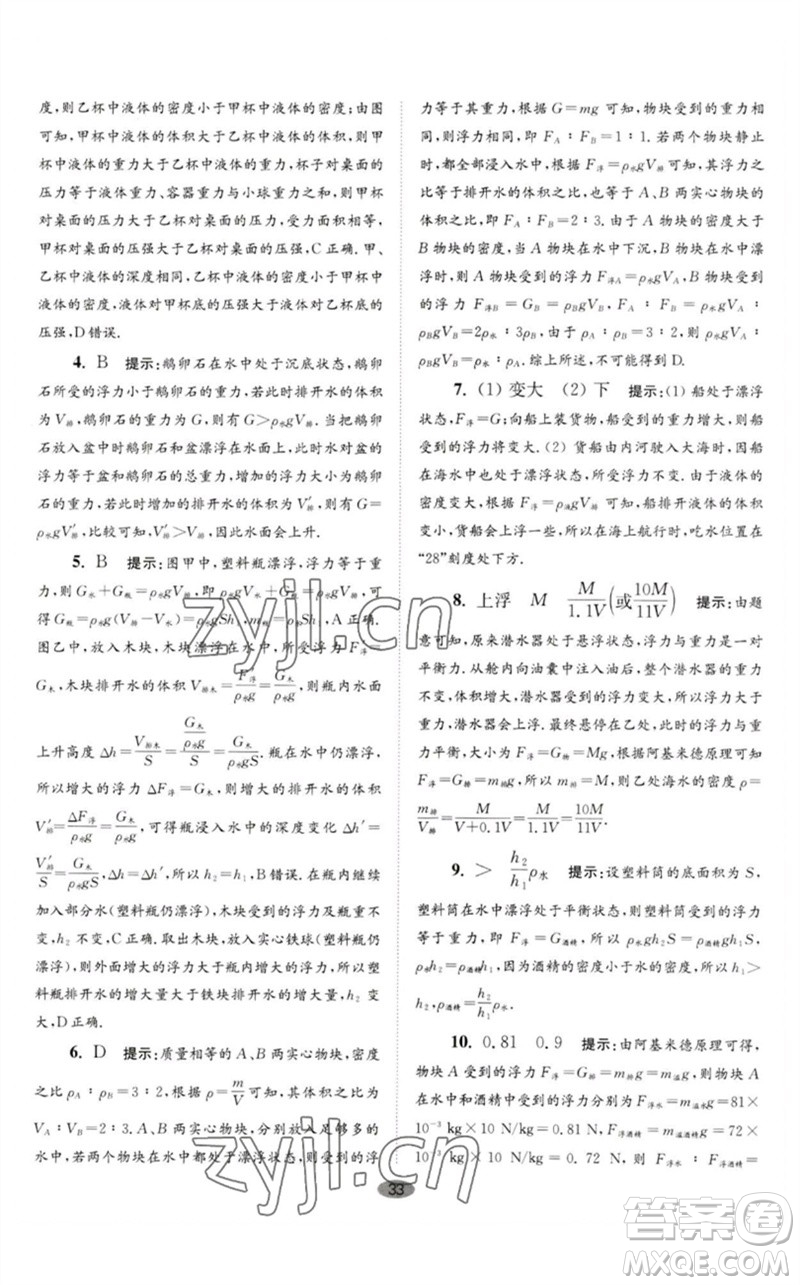 度，则乙杯中液体的密度小于甲杯中液体的密度；由图
可知，甲杯中液体的体积大于乙杯中液体的体积，则甲
杯中液体的重力大于乙杯中液体的重力，杯子对桌面的
压力等于液体重力、容器重力与小球重力之和，则甲杯
对桌面的压力大于乙杯对桌面的压力，受力面积相等，
甲杯对桌面的压强大于乙杯对桌面的压强，C正确．甲、
乙杯中液体的深度相同，乙杯中液体的密度小于甲杯
中液体的密度，液体对甲杯底的压强大于对乙杯底的
压强，D错误．
4. B 提示：鹅卵石在水中处于沉底状态，鹅卵
石所受的浮力小于鹅卵石的重力，此时排开水的体积
为V排，鹅卵石的重力为G，则有G＞ρ水gV排．当把鹅卵
石放入盆中时鹅卵石和盆漂浮在水面上，此时水对盆的
浮力等于盆和鹅卵石的总重力，增加的浮力大小等于鹅卵
石的重力，此时增加的排开水的体积为V′排，则有G＝
ρ水gV′排，比较可知，V′排＞V排，故水面会上升．
5. B 提示：图甲中，塑料瓶漂浮，浮力等于重
力，则有G水＋G瓶＝ρ水gV排，即ρ水gV水＋G瓶＝
ρ水gV排，则有G瓶＝ρ水g(V排－V水)＝ρ水gSh1，A正确．
图乙中，放入木块，木块漂浮在水中，所受浮力F浮＝
G木，木块排开水的体积V排木＝F浮/ρ水g＝G木/ρ水g，则瓶内水面
上升高度Δh＝V排木/S＝(G木/ρ水g)/S＝G木/ρ水gS．瓶在水中仍漂浮，
所以增大的浮力ΔF浮＝G木，增大的排开水的体积
V′排＝ΔF浮/ρ水g＝G木/ρ水g，可得瓶浸入水中的深度变化Δh′＝
V′排/S＝G木/ρ水gS，Δh＝Δh′，所以h2＝h1，B错误．在瓶内继续
加入部分水(塑料瓶仍漂浮)，木块受到的浮力及瓶重不
变，h2不变，C正确．取出木块，放入实心铁球(塑料瓶仍
漂浮)，则外面增大的浮力大于瓶内增大的浮力，所以塑
料瓶排开水的增大量大于铁块排开水的增大量，h2变
大，D正确．
6. D 提示：质量相等的A、B两实心物块，密度
之比ρA∶ρB＝3∶2，根据ρ＝m/V可知，其体积之比
VA∶VB＝2∶3．A、B两实心物块，分别放入足够多的水
中，若两个物块在水中都处于漂浮状态，则受到的浮
力等于其重力，根据G＝mg可知，物块受到的重力相
同，所受的浮力相等，即FA∶FB＝1∶1．若两个物块静止
时，都全部浸入水中，根据F浮＝ρ水gV排可知，浮力之
比等于排开水的体积之比，也等于A、B两实心物块的体
积之比，即FA∶FB＝2∶3．由于A物块的密度大于
B物块的密度，当A物块在水中下沉，B物块在水中漂
浮时，则A物块受到的浮力F浮A＝ρ水gVA，B物块受到
的浮力F浮B＝GB＝ρBgVB，浮力之比为ρ水gVA∶
ρBgVB＝2ρ水∶3ρB，由于ρA∶ρB＝3∶2，则有
ρ水gVA∶ρAgVA．综上所述，不可能得到D．
7. (1) 变大 (2) 下 提示：(1) 船处于漂浮
状态，F浮＝G；向船上装货物，船受到的重力增大，则船
受到的浮力将变大．(2) 货船由内河驶入大海时，货船
在海水中也处于漂浮状态，所受浮力不变．由于液体的
密度变大，根据F浮＝ρ液gV排可知，货船排开海水的体积
变小，货船会上浮一些，所以在海上航行时，吃水位置在
“28”刻度处下方．
8. 上浮 M M/1.1V(或10M/11V) 提示：由题
意可知，原来潜水器处于悬浮状态，浮力与重力是一对
平衡力．从舱内向油囊中注入油后，整个潜水器的体积
增大、重力不变，所以潜水器的浮力变大，所以浮力大于
重力，潜水器将会上浮．最终悬停在乙处，此时浮力与重
力平衡，大小为F浮＝G物＝Mg，根据阿基米德原理可知，
F浮＝G排，所以m排＝m物＝M，则乙处海水的密度ρ＝
m排/V排＝M/V＋0.1V＝M/1.1V＝10M/11V．
9. ＞ h2/h1ρ水 提示：设塑料筒的底面积为S，
塑料筒在水中漂浮处于平衡状态，则受到的浮力
等于重力，即F浮＝G＝F酒精，所以ρ水gh2S＝
ρ酒精gh1S，ρ水h2＝ρ酒精h1，因为酒精的密度小于水的密度，所以h1＞
h2，ρ酒精＝h2/h1ρ水．
10. 0.81 0.9 提示：由阿基米德原理可得，
物块A受到的浮力F浮＝G排＝m排g＝m溢g，则物块A
在水中和酒精中受到的浮力分别为F浮水＝m溢水g＝81×
10⁻³ kg×10 N/kg＝0.81 N，F浮酒精＝m溢酒精g＝72×
10⁻³ kg×10 N/kg＝0.72 N，则F浮水∶F浮酒精＝
33
zyjl.cn
zyjl.cn
答案圈
MXQE.COM